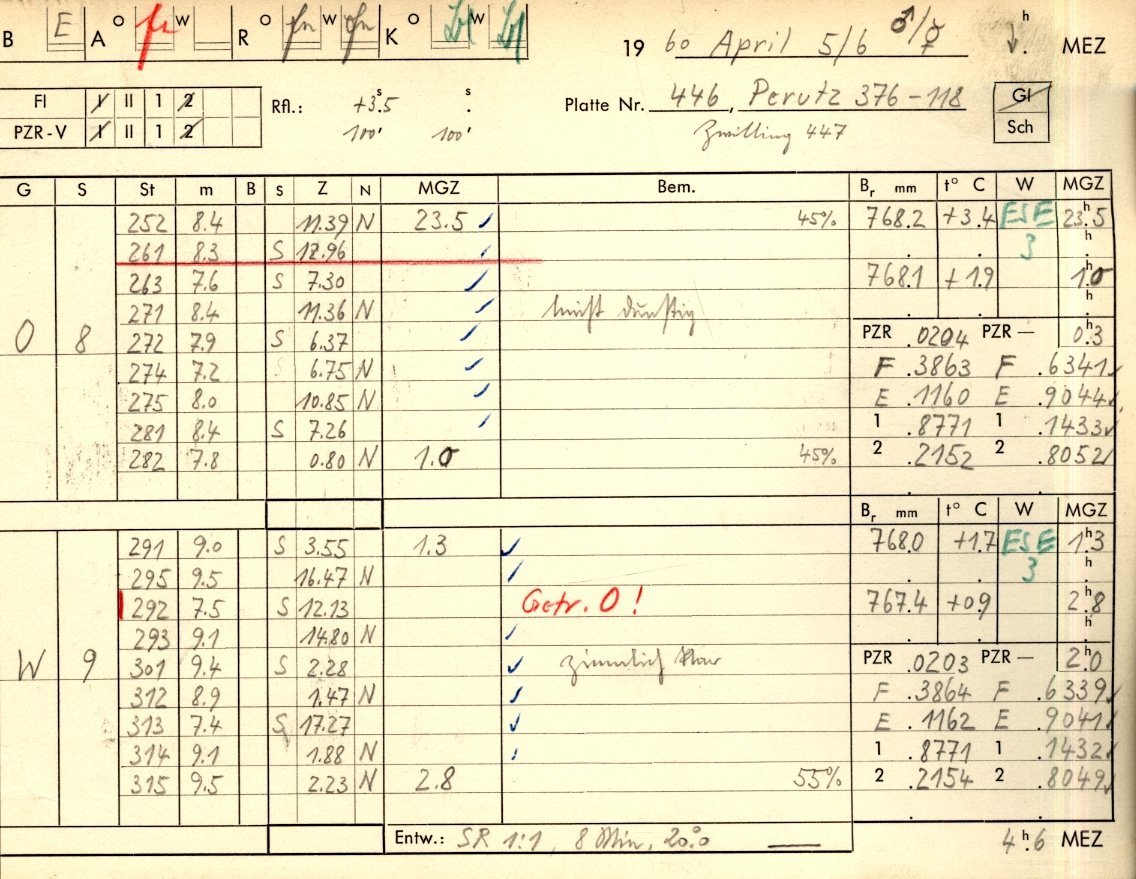 B E A o fr W R o fn W fn K o W
19 60 April 5/6 ♂/☿ h MEZ
FI I II 1 2 Rfl.: +3.5 s s Platte Nr. 446, Perutz 376-118 Gl
PZR-V I II 1 2 100' 100' Zwilling 447 Sch
G S St m B S Z N MGZ Bem. Br mm t° C W MGZ
252 8.4 11.39 N 23.5 45% 768.2 +3.4 ESE 23h.5
261 8.3 S 12.96 3 h
263 7.6 S 7.30 768.1 +1.9 1.0
271 8.4 11.36 N leicht dunstig h
O 8 272 7.9 S 6.37 PZR .0204 PZR — 0h.3
274 7.2 6.75 N F .3863 F .6341
275 8.0 10.85 N E .1160 E .9044
281 8.4 S 7.26 1 .8771 1 .1433
282 7.8 0.80 N 1.0 45% 2 .2152 2 .8052
Br mm t° C W MGZ
291 9.0 S 3.55 1.3 768.0 +1.7 ESE 1h.3
295 9.5 16.47 N 3 h
292 7.5 S 12.13 Getr. O! 767.4 +0.9 2.8
293 9.1 14.80 N h
W 9 301 9.4 S 2.28 ziemlich klar PZR .0203 PZR — 2h.0
312 8.9 1.47 N F .3864 F .6339
313 7.4 S 17.27 E .1162 E .9041
314 9.1 1.88 N 1 .8771 1 .1432
315 9.5 2.23 N 2.8 55% 2 .2154 2 .8049
Entw.: SR 1:1, 8 Min, 20°.0 4h.6 MEZ